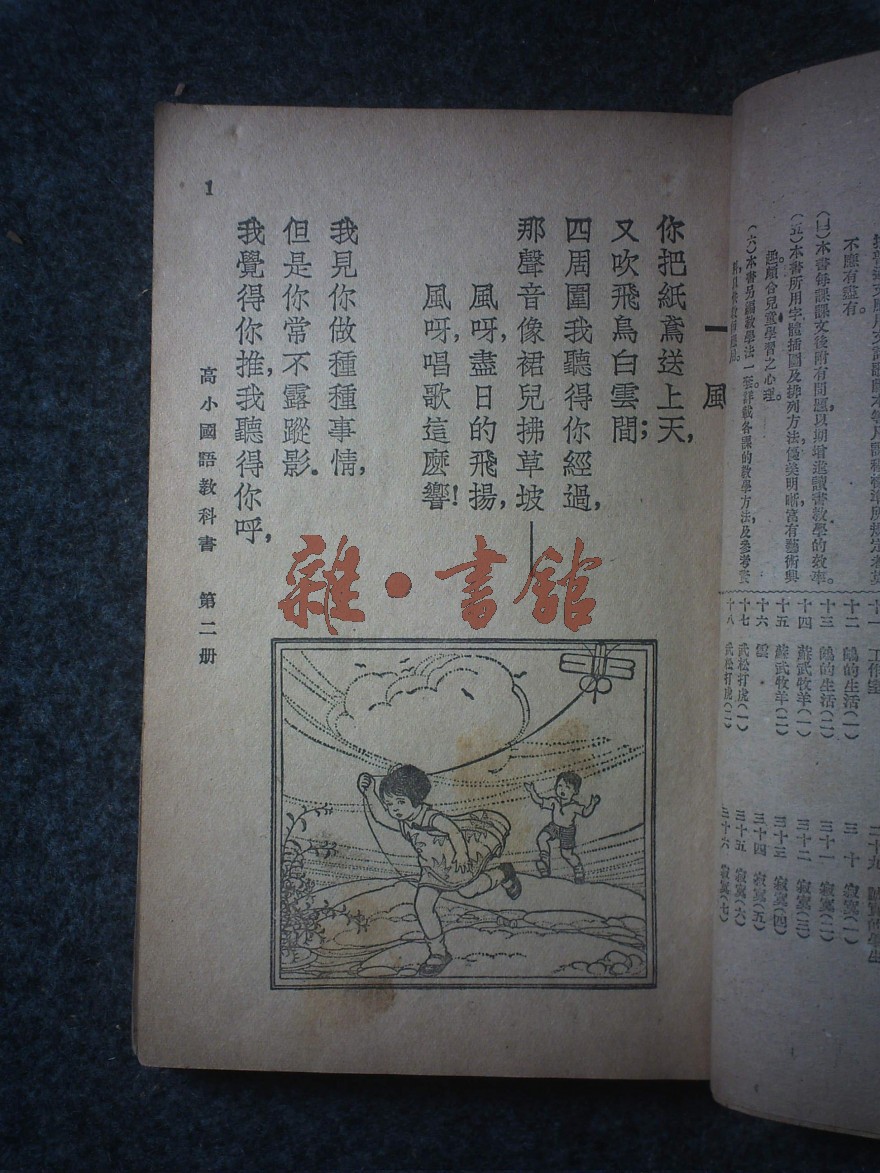 不應有盡有。
(四)本書每課課文後附有問題，以期增進讀書教學的效率。
(五)本書所用字體插圖及排列方法，優美明晰，富有藝術與
趣，頗合兒童學習之心理。
(六)本書另編教學法一套，詳載各課的教學方法，及參考資
十二 鴿的生活(一)
十三 鴿的生活(二)
十四 蘇武牧羊(一)
十五 蘇武牧羊(二)
十六 雲
十七 武松打虎(一)
十八 武松打虎(二)
三十 寂寞(一)
三十一 寂寞(二)
三十二 寂寞(三)
三十三 寂寞(四)
三十四 寂寞(五)
三十五 寂寞(六)
三十六 寂寞(七)
一 風
你把紙鳶送上天，
又吹飛鳥白雲間；
四周圍我聽得你經過，
那聲音像裙兒拂草坡——
風呀，盡日的飛揚，
風呀，唱歌這麼響！
我見你做種種事情，
但是你常不露蹤影。
我覺得你推，我聽得你呼，
高小國語教科書 第二册
1
雜·書館